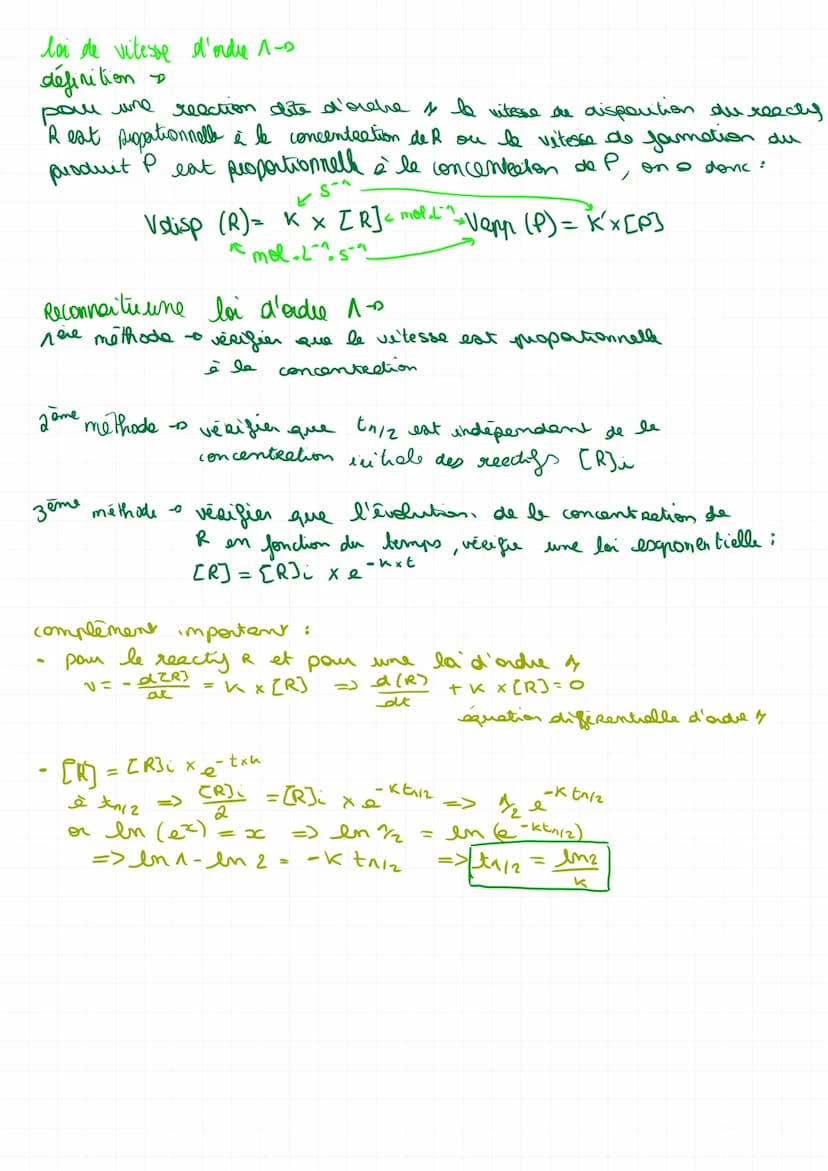 loi de vitesse d'ordre 1 →
définition →
pour une reaction dite d'ordre 1 la vitesse de disparition du reactif
R est proportionnelle à la concentration de R ou la vitesse de formation du
produit P est proportionnelle à la concentration de P, on a donc :
s⁻¹
Vdisp (R) = K × [R] ← mol.L⁻¹ → Vapp (P) = K' × [P]
mol.L⁻¹.s⁻¹
Reconnaitre une loi d'ordre 1 →
1ère méthode → vérifier que la vitesse est proportionnelle
à la concentration
2ème méthode → vérifier que t1/2 est indépendant de la
concentration initiale des reactifs [R]i
3ème méthode → vérifier que l'évolution de la concentration de
R en fonction du temps, vérifie une loi exponentielle :
[R] = [R]i × e^-K×t
complément important :
- pour le reactif R et pour une loi d'ordre 1
v = - d[R]/dt = K × [R] => d(R)/dt + K × [R] = 0
équation différentielle d'ordre 1
- [R] = [R]i × e^-t×k
à t1/2 => [R]i/2 = [R]i × e^-K t1/2 => 1/2 e^-K t1/2
or ln (e^x) = x => ln 1/2 = ln (e^-kt1/2)
=> ln 1 - ln 2 = -K t1/2 => t1/2 = ln2/K